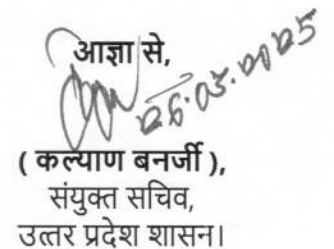 आज्ञा से,
26.05.2025
( कल्याण बनर्जी ),
संयुक्त सचिव,
उत्तर प्रदेश शासन।